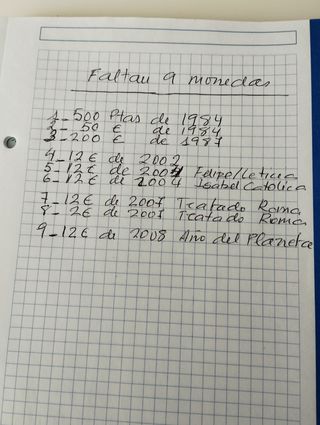 Faltan 9 monedas
1_ 500 Ptas de 1984
2_ 50 € de 1984
3_ 200 € de 1987
4_12€ de 2002
5_12€ de 2004 Felipe/Leticia
6_12€ de 2004 Isabel Catolica
7_12€ de 2007 Tratado Roma
8_2€ de 2007 Tratado Roma
9_12€ de 2008 Año del Planeta